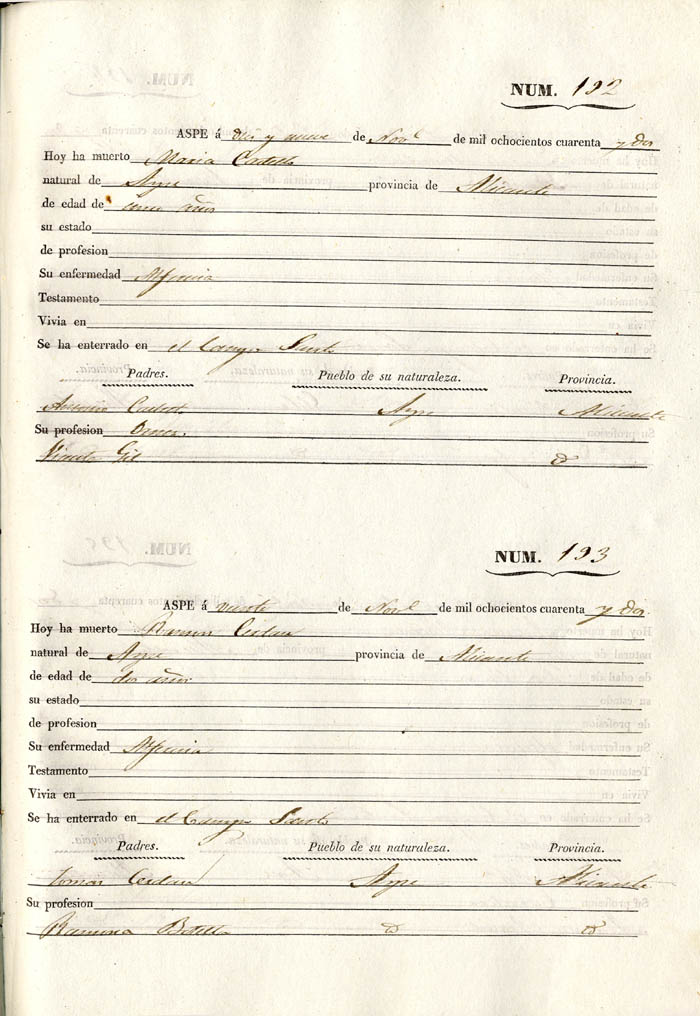 NUM. 192
ASPE á diez y nueve de Novˡ de mil ochocientos cuarenta y dos
Hoy ha muerto Maria
natural de Aspe provincia de Alicante
de edad de años
su estado
de profesion
Su enfermedad
Testamento
Vivia en
Se ha enterrado en el Campo Santo
Padres. Pueblo de su naturaleza. Provincia.
Antonio Aspe Alicante
Su profesion
Vicenta Gil
NUM. 193
ASPE á veinte de Novˡ de mil ochocientos cuarenta y dos.
Hoy ha muerto Ramon Cerdan
natural de Aspe provincia de Alicante
de edad de dos años
su estado
de profesion
Su enfermedad
Testamento
Vivia en
Se ha enterrado en el Campo Santo
Padres. Pueblo de su naturaleza. Provincia.
Tomas Cerdan Aspe Alicante
Su profesion
Ramona Botella